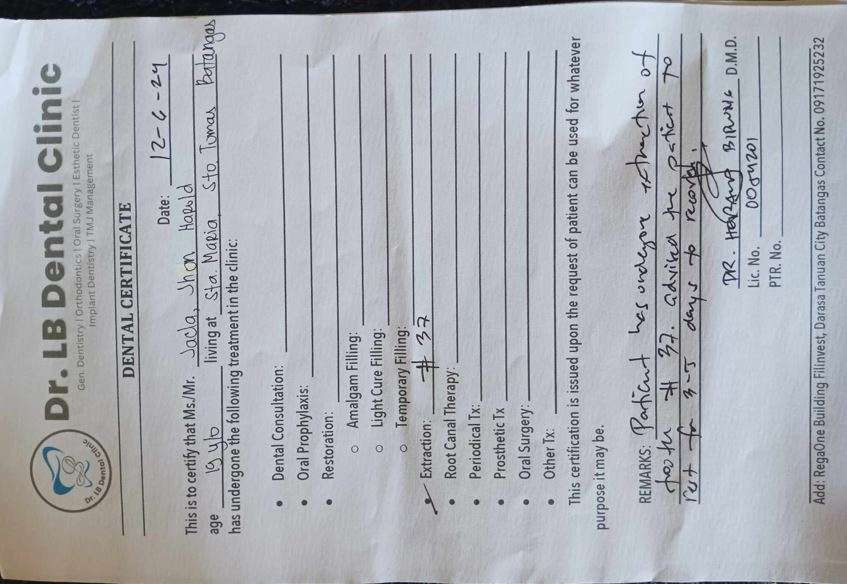 Dr. LB Dental Clinic
Gen. Dentistry | Orthodontics | Oral Surgery | Esthetic Dentist |
Implant Dentistry | TMJ Management
Dr. LB Dental Clinic
DENTAL CERTIFICATE
Date: 12-6-24
This is to certify that Ms./Mr. Jacla, Jhon Harold
age 19 y/o living at Sta. Maria Sto Tomas Batangas
has undergone the following treatment in the clinic:
• Dental Consultation:
• Oral Prophylaxis:
• Restoration:
○ Amalgam Filling:
○ Light Cure Filling:
○ Temporary Filling:
• Extraction: # 37
• Root Canal Therapy:
• Periodical Tx:
• Prosthetic Tx
• Oral Surgery:
• Other Tx:
This certification is issued upon the request of patient can be used for whatever
purpose it may be.
REMARKS: Patient has undergone extraction of
tooth # 37. advised the patient to
rest for 3-5 days to recover.
DR. BIRUNG D.M.D.
Lic. No.
PTR. No.
Add: RegaOne Building Fillnvest, Darasa Tanuan City Batangas Contact No. 09171925232